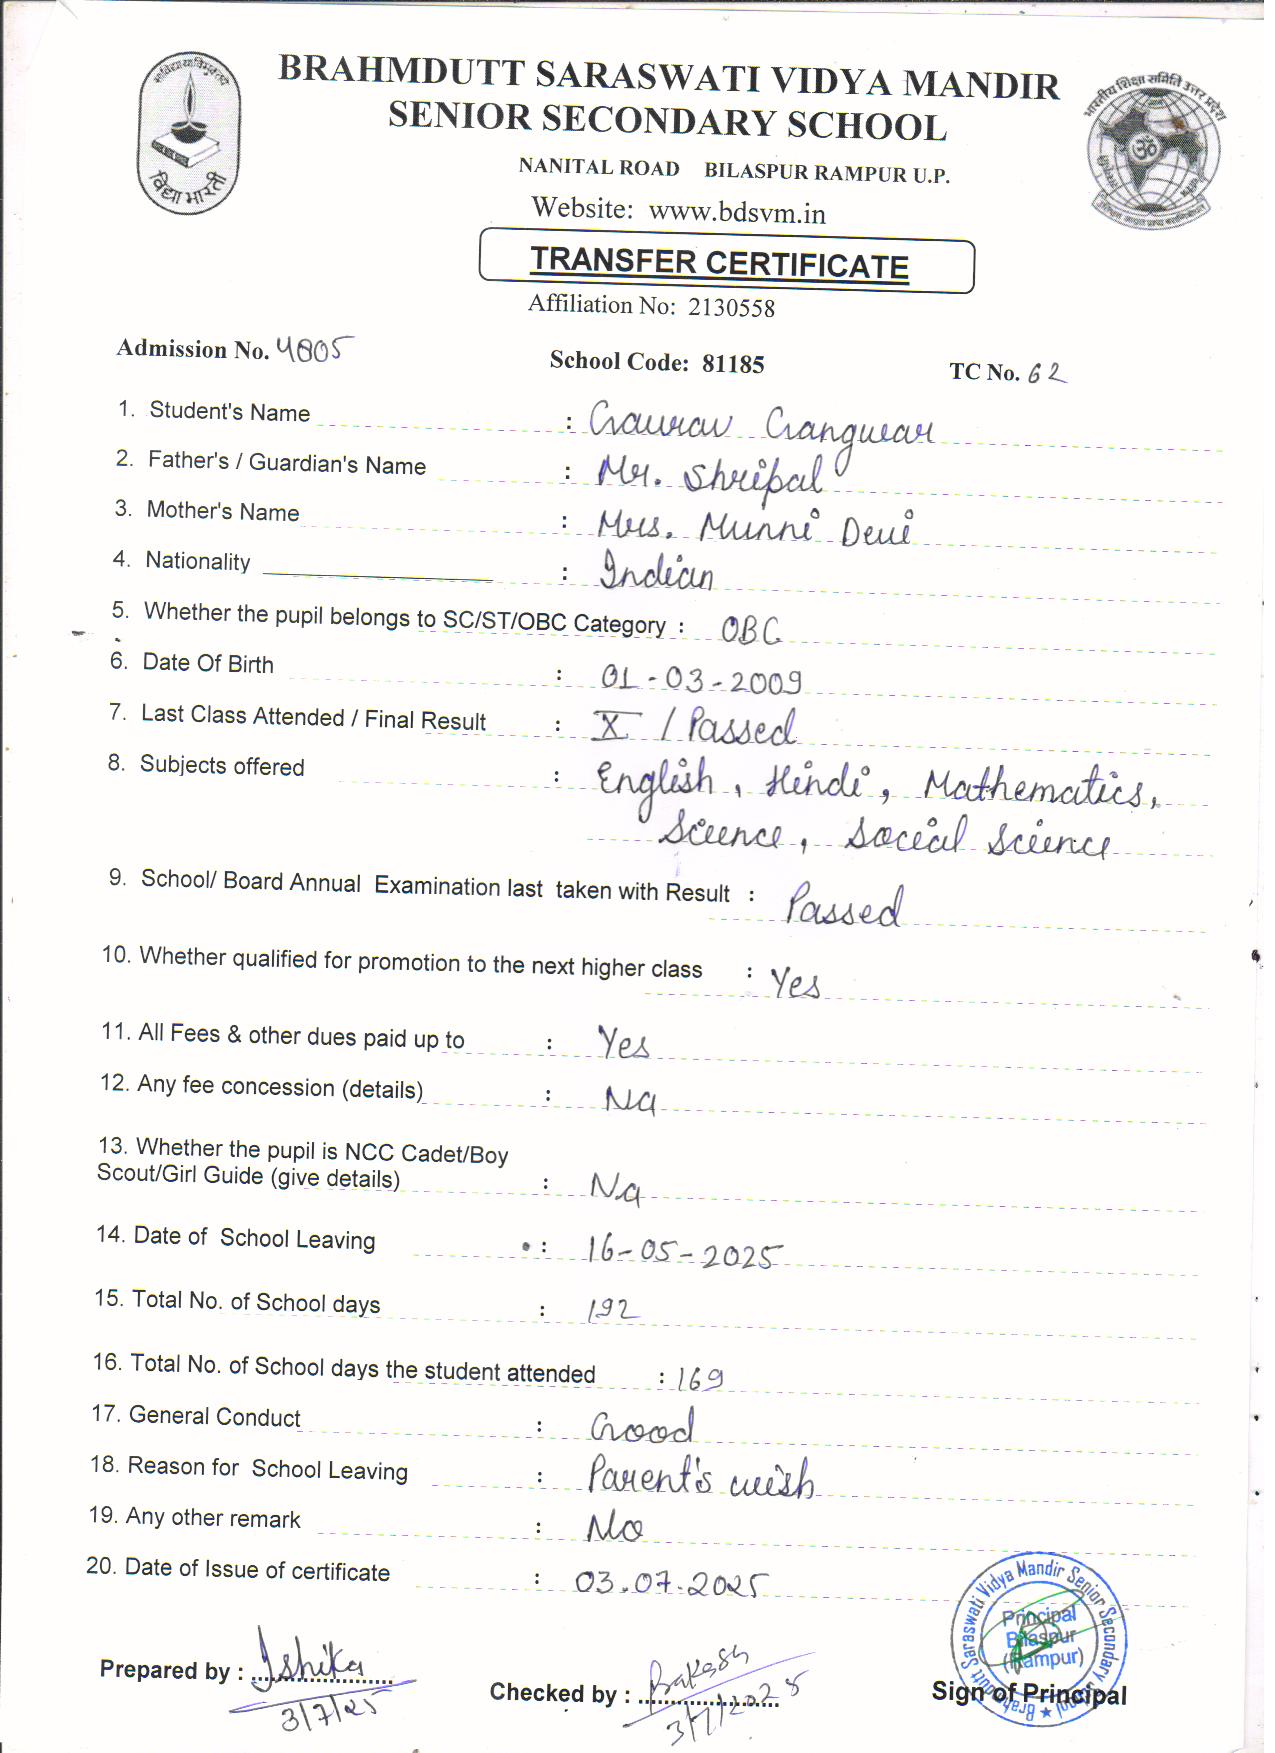 सा विद्या या विमुक्तये
विद्या भारती
BRAHMDUTT SARASWATI VIDYA MANDIR
SENIOR SECONDARY SCHOOL
भारतीय शिक्षा समिति उत्तर प्रदेश
NANITAL ROAD BILASPUR RAMPUR U.P.
Website: www.bdsvm.in
TRANSFER CERTIFICATE
Affiliation No: 2130558
Admission No. 4805 School Code: 81185 TC No. 62
1. Student's Name : Gaurav Gangwar
2. Father's / Guardian's Name : Mr. Shripal
3. Mother's Name : Mrs. Munni Devi
4. Nationality : Indian
5. Whether the pupil belongs to SC/ST/OBC Category : OBC
6. Date Of Birth : 01-03-2009
7. Last Class Attended / Final Result : X / Passed
8. Subjects offered : English, Hindi, Mathematics,
Science, Social Science
9. School/ Board Annual Examination last taken with Result : Passed
10. Whether qualified for promotion to the next higher class : Yes
11. All Fees & other dues paid up to : Yes
12. Any fee concession (details) : Na
13. Whether the pupil is NCC Cadet/Boy
Scout/Girl Guide (give details) : Na
14. Date of School Leaving : 16-05-2025
15. Total No. of School days : 192
16. Total No. of School days the student attended : 169
17. General Conduct : Good
18. Reason for School Leaving : Parent's wish
19. Any other remark : No
20. Date of Issue of certificate : 03.07.2025
Brahmdutt Saraswati Vidya Mandir Senior Secondary School
Principal
Bilaspur
(Rampur)
Prepared by : Ishika
3/7/25
Checked by : Rakesh
3/7/2025
Sign of Principal